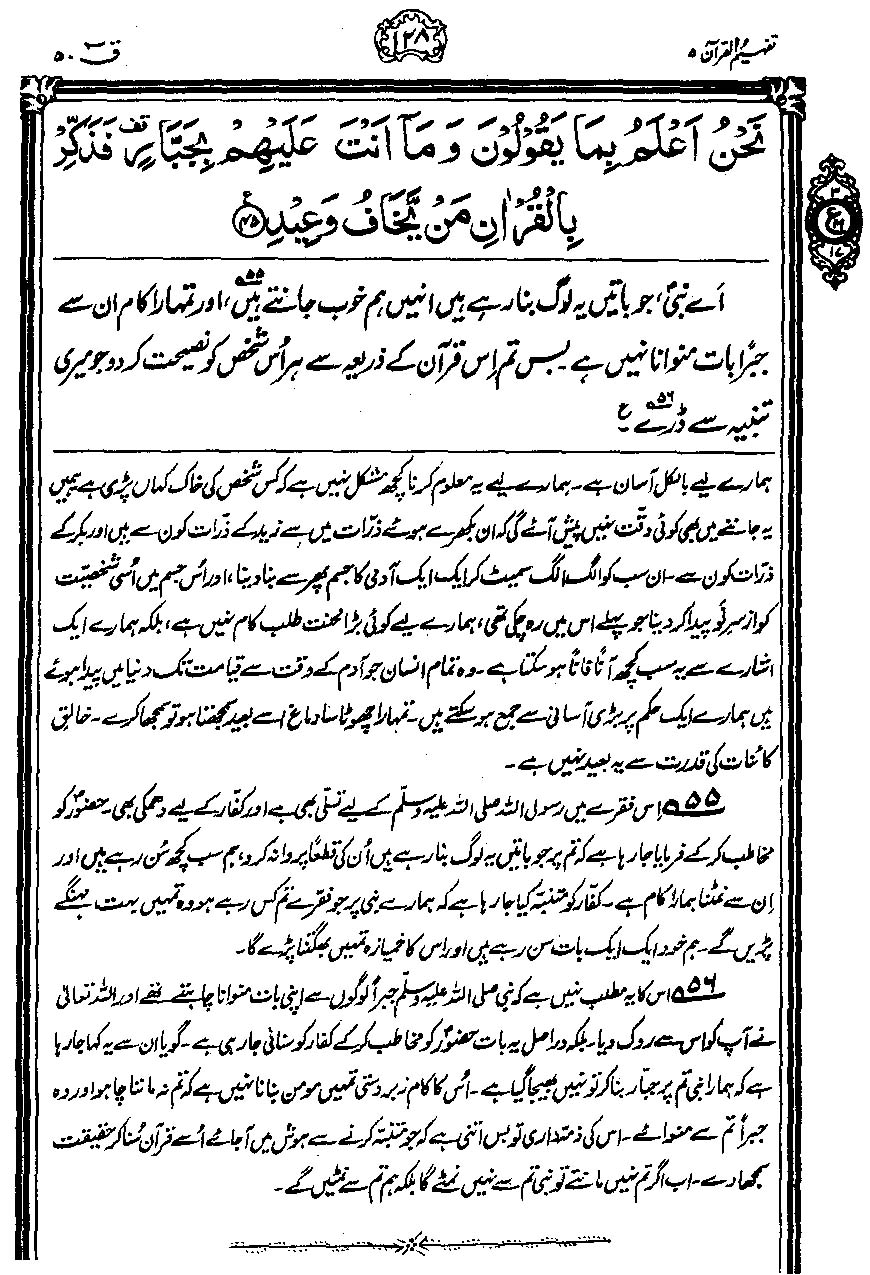 تفہیم القرآن ۵
۱۲۸
قٓ ۵۰
نَحْنُ اَعْلَمُ بِمَا يَقُوْلُوْنَ وَمَآ اَنْتَ عَلَيْهِمْ بِجَبَّارٍ ۣ قف فَذَكِّرْ
بِالْقُرْاٰنِ مَنْ يَّخَافُ وَعِيْدِ ۝۴۵ ع
اَے نبیؐ، جو باتیں یہ لوگ بنا رہے ہیں انہیں ہم خوب جانتے ہیں۵۵، اور تمہارا کام ان سے
جبرًا بات منوانا نہیں ہے۔ بس تم اِس قرآن کے ذریعہ سے ہر اُس شخص کو نصیحت کر دو جو میری
تنبیہ سے ڈرے۵۶۔ ع
ہمارے لیے بالکل آسان ہے۔ ہمارے لیے یہ معلوم کرنا کچھ مشکل نہیں ہے کہ کس شخص کی خاک کہاں پڑی ہے ہمیں
یہ جاننے میں بھی کوئی دقّت نہیں پیش آئے گی کہ ان بکھرے ہوئے ذرّات میں سے زید کے ذرّات کون سے ہیں اور بکر کے
ذرّات کون سے۔ ان سب کو الگ الگ سمیٹ کر ایک ایک آدمی کا جسم پھر سے بنا دینا، اور اُس جسم میں اُسی شخصیّت
کو از سرِ نَو پیدا کر دینا جو پہلے اس میں رہ چکی تھی، ہمارے لیے کوئی بڑا محنت طلب کام نہیں ہے، بلکہ ہمارے ایک
اشارے سے یہ سب کچھ آنًا فانًا ہو سکتا ہے۔ وہ تمام انسان جو آدم کے وقت سے قیامت تک دنیا میں پیدا ہوئے
ہیں ہمارے ایک حکم پر بڑی آسانی سے جمع ہو سکتے ہیں۔ تمہارا چھوٹا سا دماغ اسے بعید سمجھتا ہو تو سمجھا کرے۔ خالقِ
کائنات کی قدرت سے یہ بعید نہیں ہے۔
۵۵ اس فقرے میں رسول اللہ صلی اللہ علیہ وسلّم کے لیے تسلّی بھی ہے اور کفار کے لیے دھمکی بھی۔ حضورؐ کو
مخاطب کر کے فرمایا جا رہا ہے کہ تم پر جو باتیں یہ لوگ بنا رہے ہیں اُن کی قطعًا پروا نہ کرو، ہم سب کچھ سُن رہے ہیں اور
اِن سے نمٹنا ہمارا کام ہے۔ کفّار کو متنبّہ کیا جا رہا ہے کہ ہمارے نبی پر جو فقرے تم کس رہے ہو وہ تمہیں بہت مہنگے
پڑیں گے۔ ہم خود ایک ایک بات سن رہے ہیں اور اس کا خمیازہ تمہیں بھگتنا پڑے گا۔
۵۶ اس کا یہ مطلب نہیں ہے کہ نبی صلی اللہ علیہ وسلّم جبرًا لوگوں سے اپنی بات منوانا چاہتے تھے اور اللہ تعالیٰ
نے آپ کو اس سے روک دیا۔ بلکہ دراصل یہ بات حضورؐ کو مخاطب کر کے کفار کو سنائی جا رہی ہے۔ گویا ان سے یہ کہا جا رہا
ہے کہ ہمارا نبی تم پر جبّار بنا کر تو نہیں بھیجا گیا ہے۔ اُس کا کام زبردستی تمہیں مومن بنانا نہیں ہے کہ تم نہ ماننا چاہو اور وہ
جبراً تم سے منوائے۔ اس کی ذمّہ داری تو بس اتنی ہے کہ جو متنبّہ کرنے سے ہوش میں آ جائے اُسے قرآن سُنا کر حقیقت
سمجھا دے۔ اب اگر تم نہیں مانتے تو نبی تم سے نہیں نمٹے گا بلکہ ہم تم سے نمٹیں گے۔